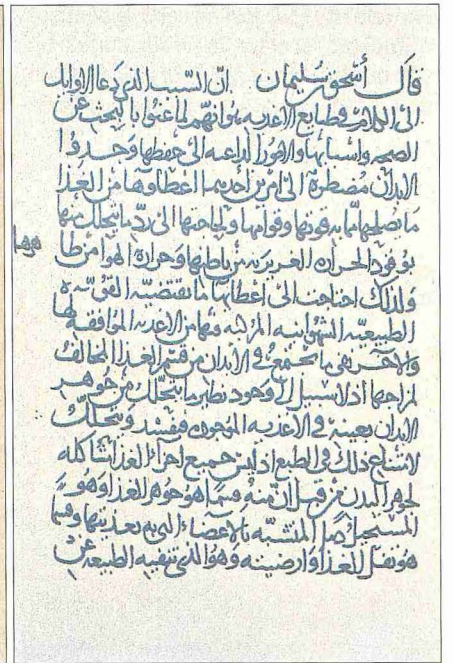 قال أسحق بن سليمان ان السبب الذى دعا الاوايل
الى الكلام فى طبايع الاغذيه هو انهم لما عنوا بالبحث عن
الصحه واسبابها والامور الداعيه الى حفظها وجدوا
الابدان مضطره الى امرين احديهما اعطاوها من الغذا
ما يصلحها مما به قوتها وقوامها ولحاجتها الى رد ما يتحلل منها
بوقود الحراره الغريزيه من باطنها وحراره الهوا من ظا
هرها
ولذلك احتاجت الى اعطايها ما تقتضيه القوى
الطبيعيه الشهوانيه المركبه فيها من الاغذيه الموافقه لها
والاخر نفى ما يجتمع فى الابدان من فضل الغذا المخالف
لمزاجها اذ لا سبيل الى وجود نظير ما يتحلل من جوهر
الابدان بعينه فى الاغذيه الموجوده فيفسد ويتحلل
لامتناع ذلك فى الطبع اذ ليس جميع اجزا الغذا مشاكله
لجوهر البدن من قبل ان منه فيما هو جوهر الغذا وهو
المستحيل المتشبه بالاعضاء التى به تغذيتها ومنها
هو ثفل للغذا وارضيته وهو الذى تنفيه الطبيعه عن